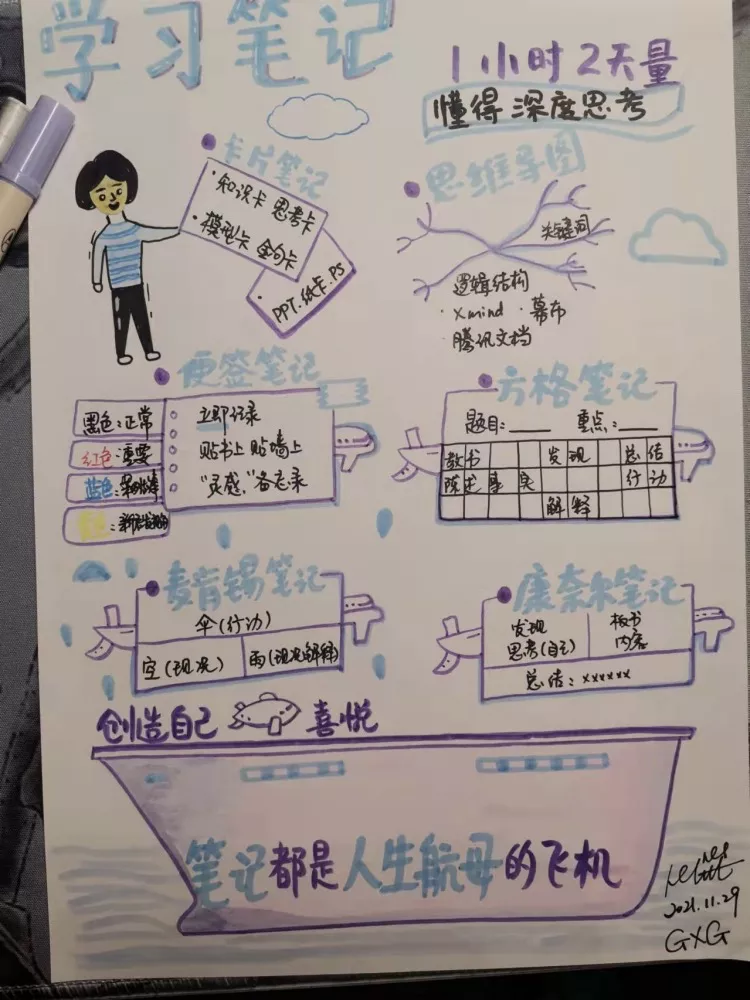 学习笔记
1小时2天量
懂得深度思考
卡片笔记
·知识卡 思考卡
·模型卡 金句卡
·PPT.纸卡.PS
思维导图
关键词
逻辑结构
·Xmind ·幕布
·腾讯文档
便签笔记
黑色:正常
红色:重要
蓝色:
立即记录
贴书上 贴墙上
"灵感"备忘录
方格笔记
题目:____ 重点:____
板书 发现 总结
陈述事实 行动
解释
麦肯锡笔记
伞(行动)
空(现况) 雨(现况解释)
康奈尔笔记
发现 板书
思考(自己) 内容
总结:xxxxxx
创造自己 喜悦
笔记都是人生航母的飞机
2021.11.29
GXG